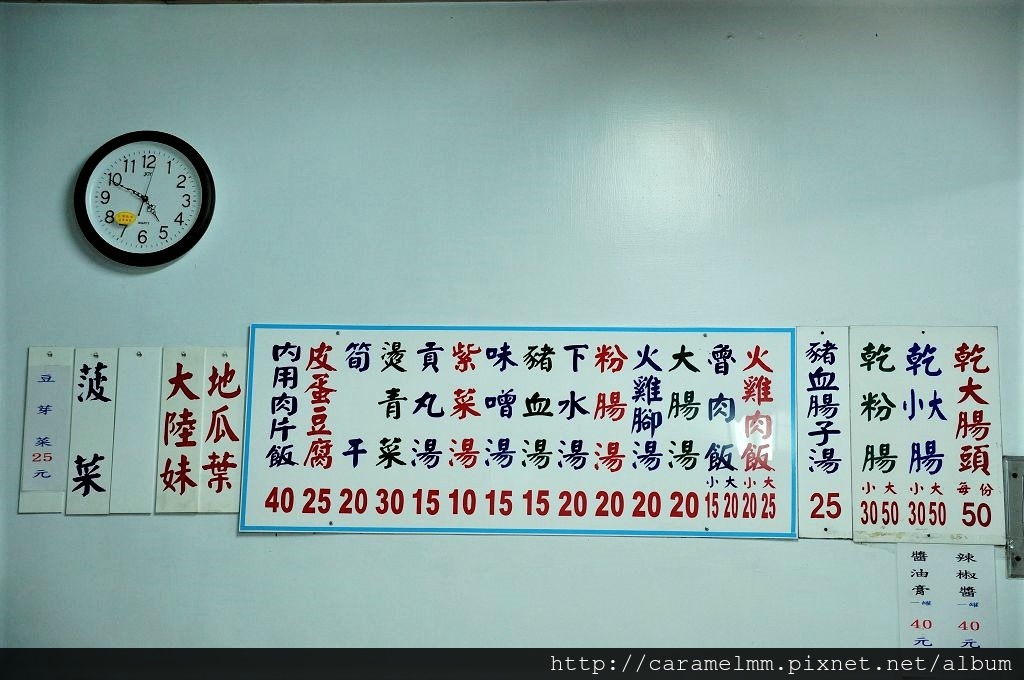 乾大腸頭 每份 50
乾小大腸 小大 30 50
乾粉腸 小大 30 50
豬血腸子湯 25
火雞肉飯 小大 20 25
魯肉飯 小大 15 20
大腸湯 20
火雞腳湯 20
粉腸湯 20
下水湯 20
豬血湯 15
味噌湯 15
紫菜湯 10
貢丸湯 15
燙青菜 30
筍干 20
皮蛋豆腐 25
內用肉片飯 40
地瓜葉
大陸妹
菠菜
豆芽菜25元
辣椒醬 一罐 40元
醬油膏 一罐 40元
12 1 2 3 4 5 6 7 8 9 10 11
JOY
QUARTZ
http://caramelmm.pixnet.net/album